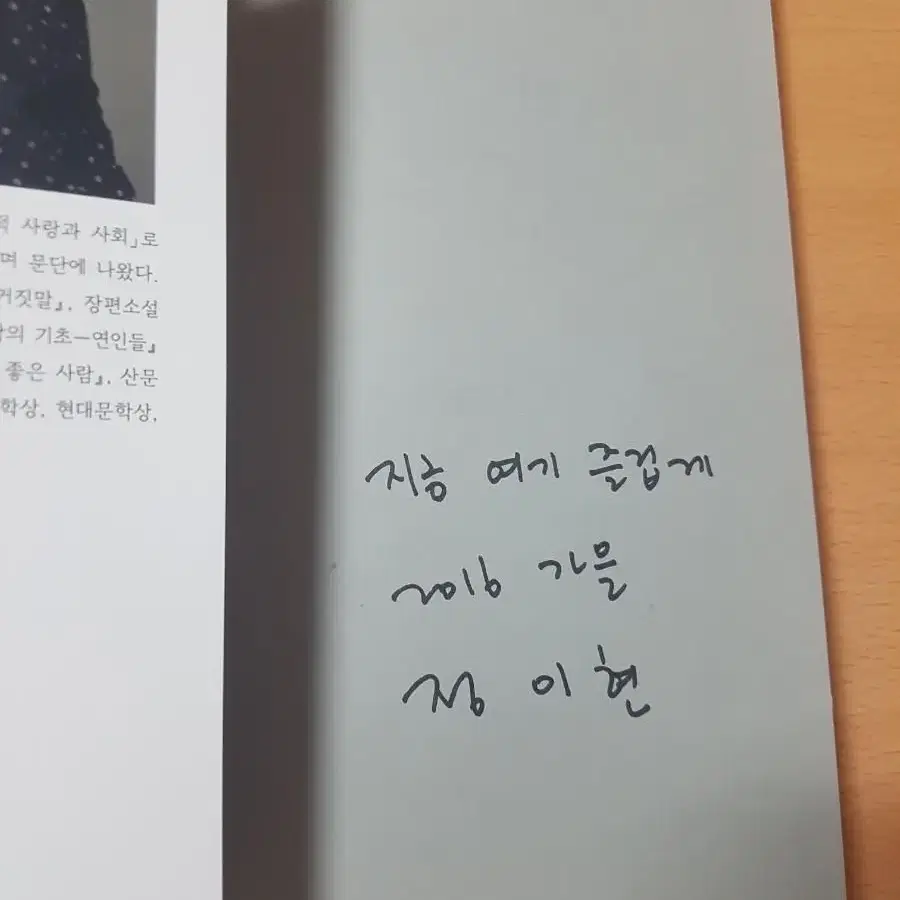 사랑과 사회」로
며 문단에 나왔다.
거짓말』, 장편소설
의 기초—연인들』
좋은 사람』, 산문
학상, 현대문학상,
지금 여기 즐겁게
2016 가을
정이현